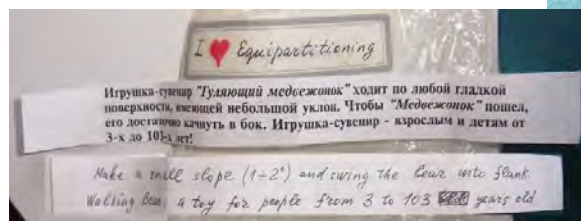 I ♥ Equipartitioning
Игрушка-сувенир "Гуляющий медвежонок" ходит по любой гладкой
поверхности, имеющей небольшой уклон. Чтобы "Медвежонок" пошел,
его достаточно качнуть в бок. Игрушка-сувенир - взрослым и детям от
3-х до 103-х лет!
Make a small slope (1÷2°) and swing the bear into flank
Walking Bear, a toy for people from 3 to 103 years old